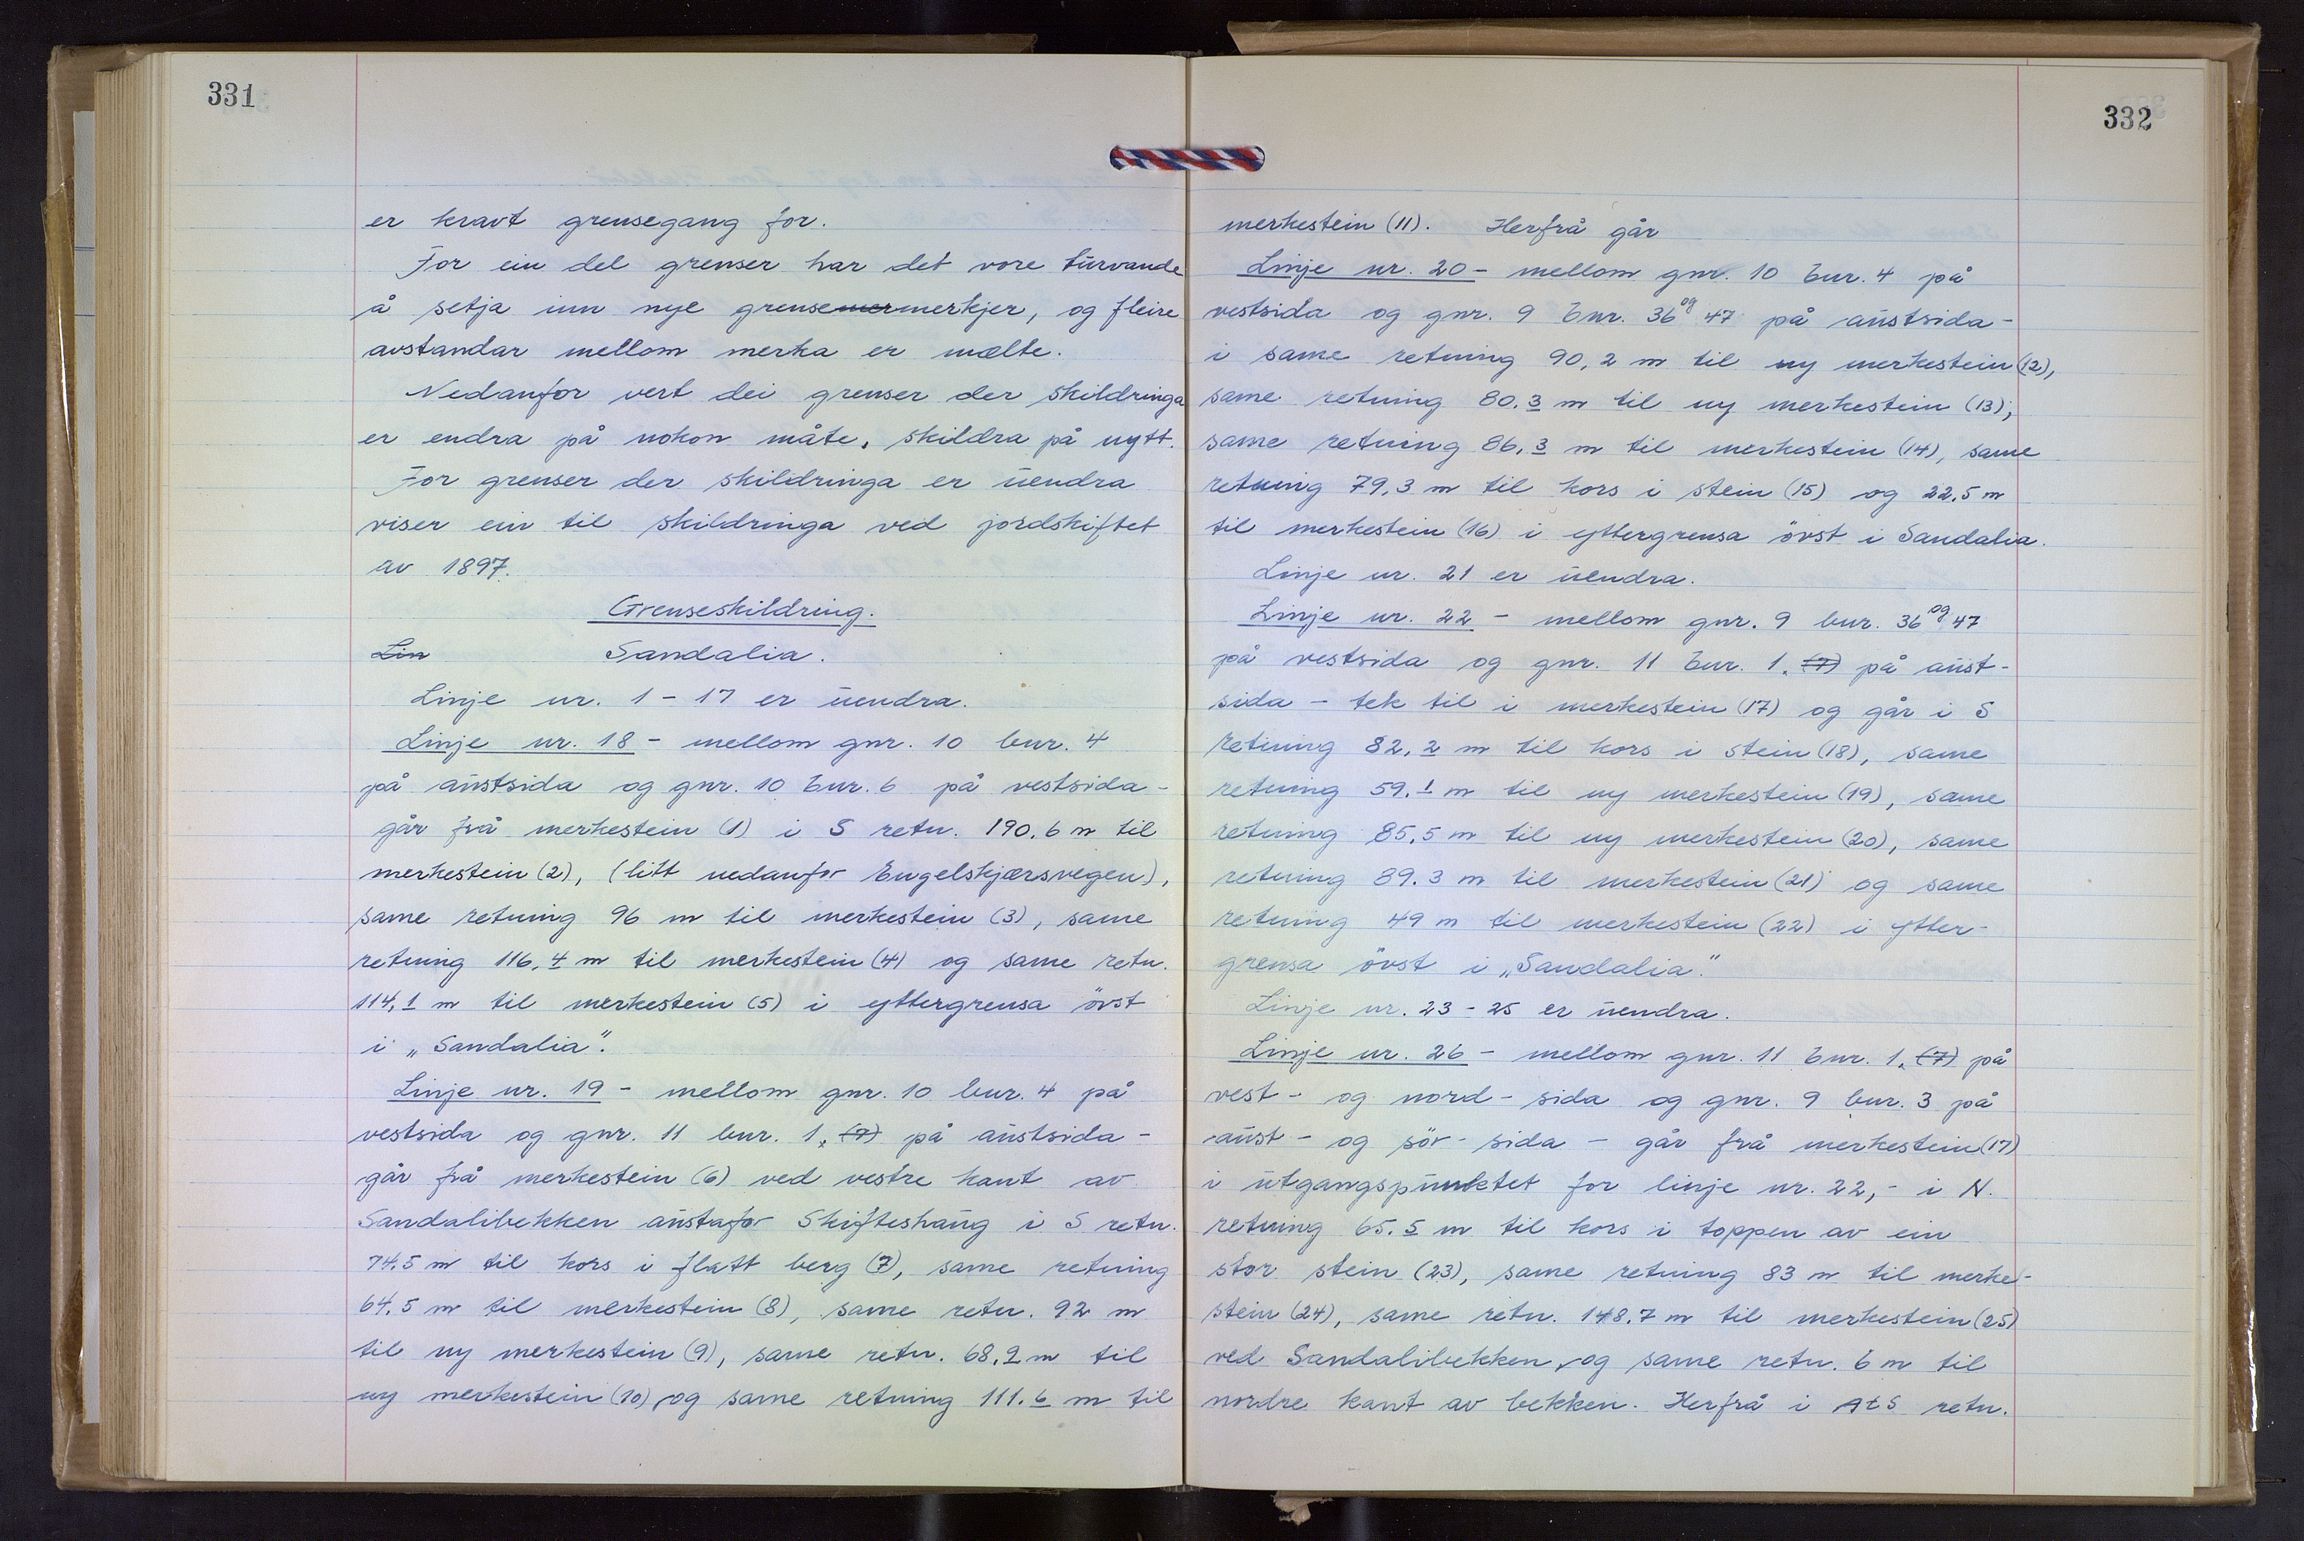 331
er kravt grensegang for.
For ein del grenser har det vore turvande
å setja inn nye grensemermerkjer, og fleire
avstandar mellom merka er mælte.
Nedanfor vert dei grenser der skildringa
er endra på nokon måte, skildra på nytt.
For grenser der skildringa er uendra
viser ein til skildringa ved jordskiftet
av 1897.
Grenseskildring.
Lin Sandalia.
Linje nr. 1 - 17 er uendra.
Linje nr. 18 - mellom gnr. 10 bnr. 4
på austsida og gnr. 10 bnr. 6 på vestsida -
går frå merkestein (1) i S retn. 190.6 m til
merkestein (2), (litt nedanfor Engelskjærsvegen),
same retning 96 m til merkestein (3), same
retning 116.4 m til merkestein (4) og same retn.
114.1 m til merkestein (5) i yttergrensa övst
i „Sandalia".
Linje nr. 19 - mellom gnr. 10 bnr. 4 på
vestsida og gnr. 11 bnr. 1, (7) på austsida -
går frå merkestein (6) ved vestre kant av
Sandalibekken austafor Skifteshaug i S retn.
74.5 m til kors i flatt berg (7), same retning
64.5 m til merkestein (8), same retn. 92 m
til ny merkestein (9), same retn. 68.9 m til
ny merkestein (10), og same retning 111.6 m til
332
merkestein (11). Herfrå går
Linje nr. 20 - mellom gnr. 10 bnr. 4 på
vestsida og gnr. 9 bnr. 36 og 47 på austsida -
i same retning 90,2 m til ny merkestein (12),
same retning 80.3 m til ny merkestein (13),
same retning 86.3 m til merkestein (14), same
retning 79.3 m til kors i stein (15) og 22.5 m
til merkestein (16) i yttergrensa övst i Sandalia.
Linje nr. 21 er uendra.
Linje nr. 22 - mellom gnr. 9 bnr. 36 og 47
på vestsida og gnr. 11 bnr. 1, (7) på aust-
sida - tek til i merkestein (17) og går i S
retning 82.2 m til kors i stein (18), same
retning 59.1 m til ny merkestein (19), same
retning 85.5 m til ny merkestein (20), same
retning 89.3 m til merkestein (21) og same
retning 49 m til merkestein (22) i ytter-
grensa övst i „Sandalia."
Linje nr. 23 - 25 er uendra.
Linje nr. 26 - mellom gnr. 11 bnr. 1, (7) på
vest - og nord - sida og gnr. 9 bnr. 3 på
aust - og sör - sida - går frå merkestein (17)
i utgangspunktet for linje nr. 22, - i N.
retning 65.5 m til kors i toppen av ein
stor stein (23), same retning 83 m til merke-
stein (24), same retn. 148.7 m til merkestein (25)
ved Sandalibekken, og same retn. 6 m til
nordre kant av bekken. Herfrå i AtS retn.